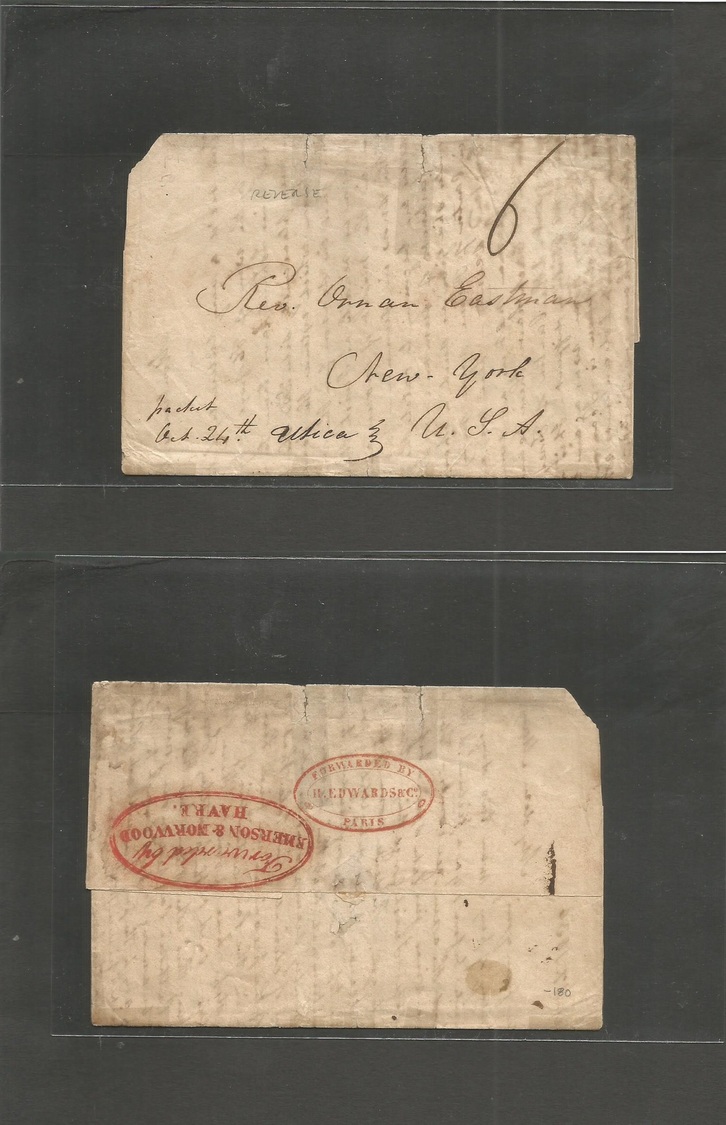 REVERSE
6
Rev. Ornan Eastman
New-York
packet
Oct. 24th Utica U. S. A.
FORWARDED BY
H. EDWARDS & Co.
PARIS
Forwarded by
EMERSON & NORWOOD
HAVRE.
-180